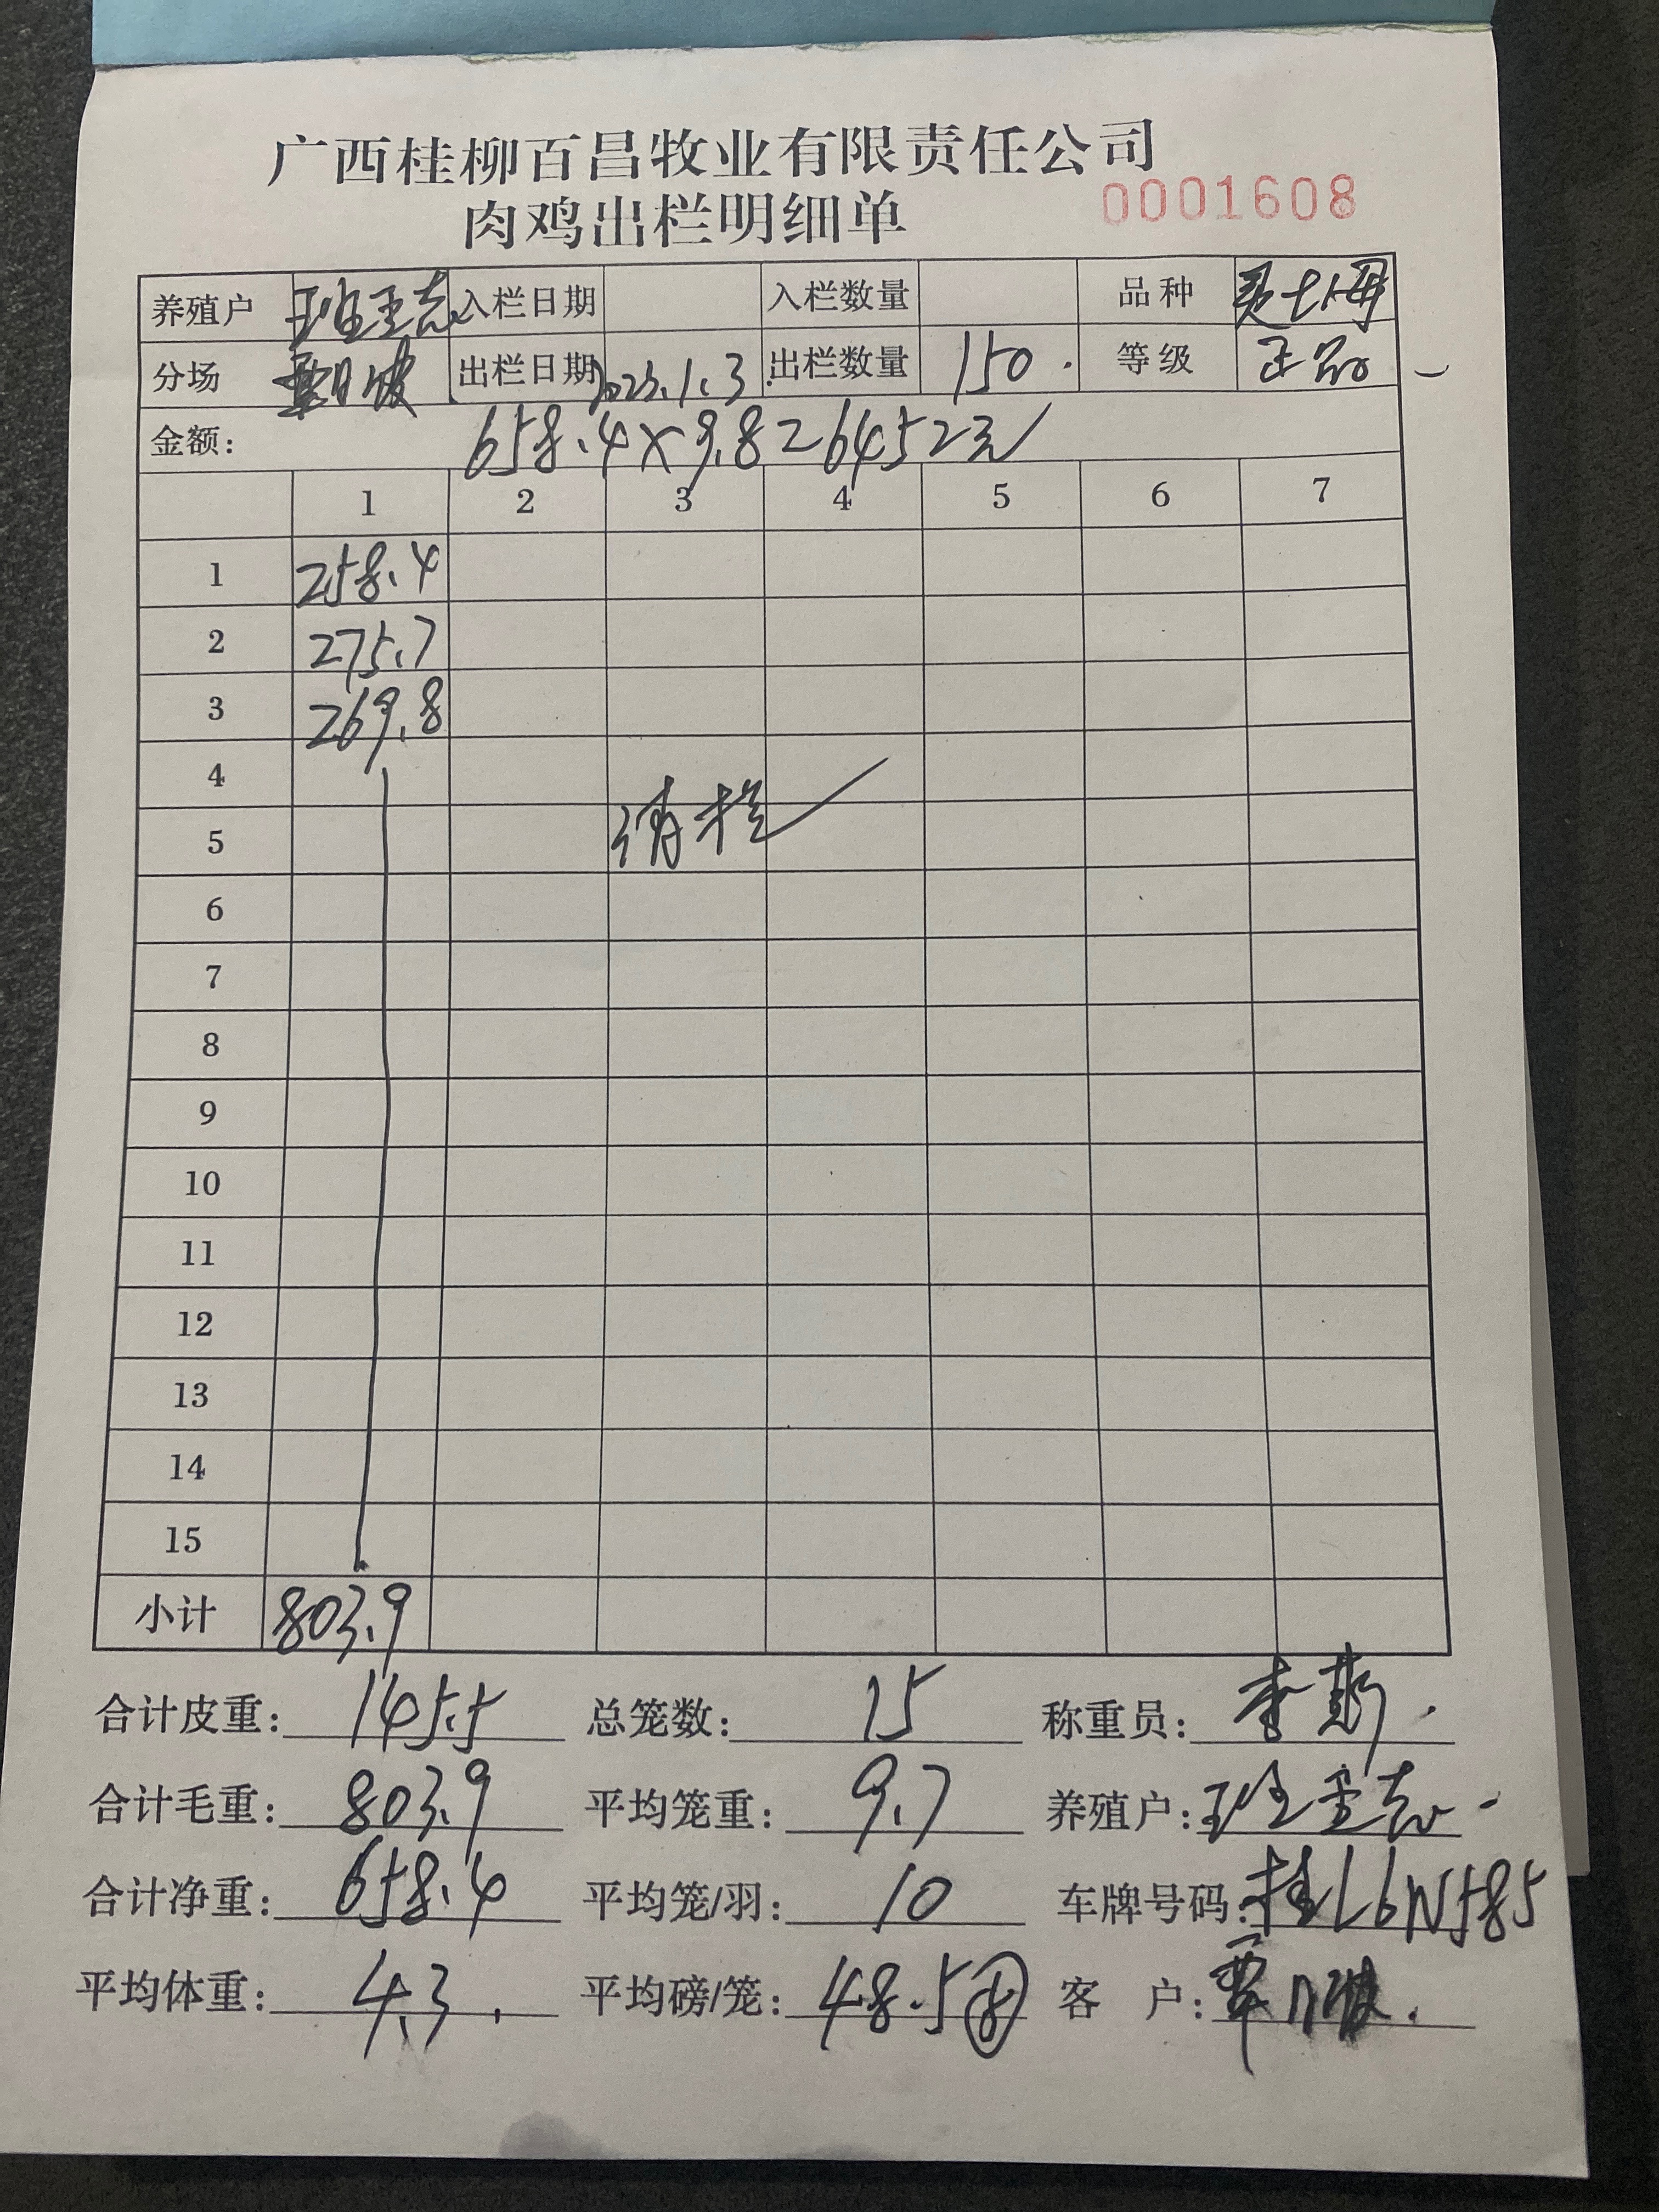 广西桂柳百昌牧业有限责任公司
肉鸡出栏明细单 0001608
养殖户 入栏日期 入栏数量 品种
分场 出栏日期 2023.1.3. 出栏数量 150. 等级 正品
金额: 658.4×9.8=6452元
1 2 3 4 5 6 7
1 258.4
2 275.7
3 269.8
4
5 清栏
6
7
8
9
10
11
12
13
14
15
小计 803.9
合计皮重: 145.5 总笼数: 15 称重员:
合计毛重: 803.9 平均笼重: 9.7 养殖户:
合计净重: 658.4 平均笼/羽: 10 车牌号码: 桂L6N585
平均体重: 4.3. 平均磅/笼: 48.5 客 户: